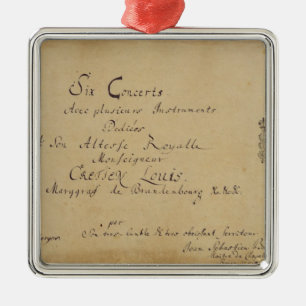 Six Concerts
Avec plusieurs Instruments.
Dediées
Son Altesse Royalle
Monseigneur
CRETIEN LOUIS.
Marggraf de Brandenbourg &c:&c:&c:
par
Son tres-humble & tres obeissant serviteur
Jean Sebastien
Maitre de Chapelle